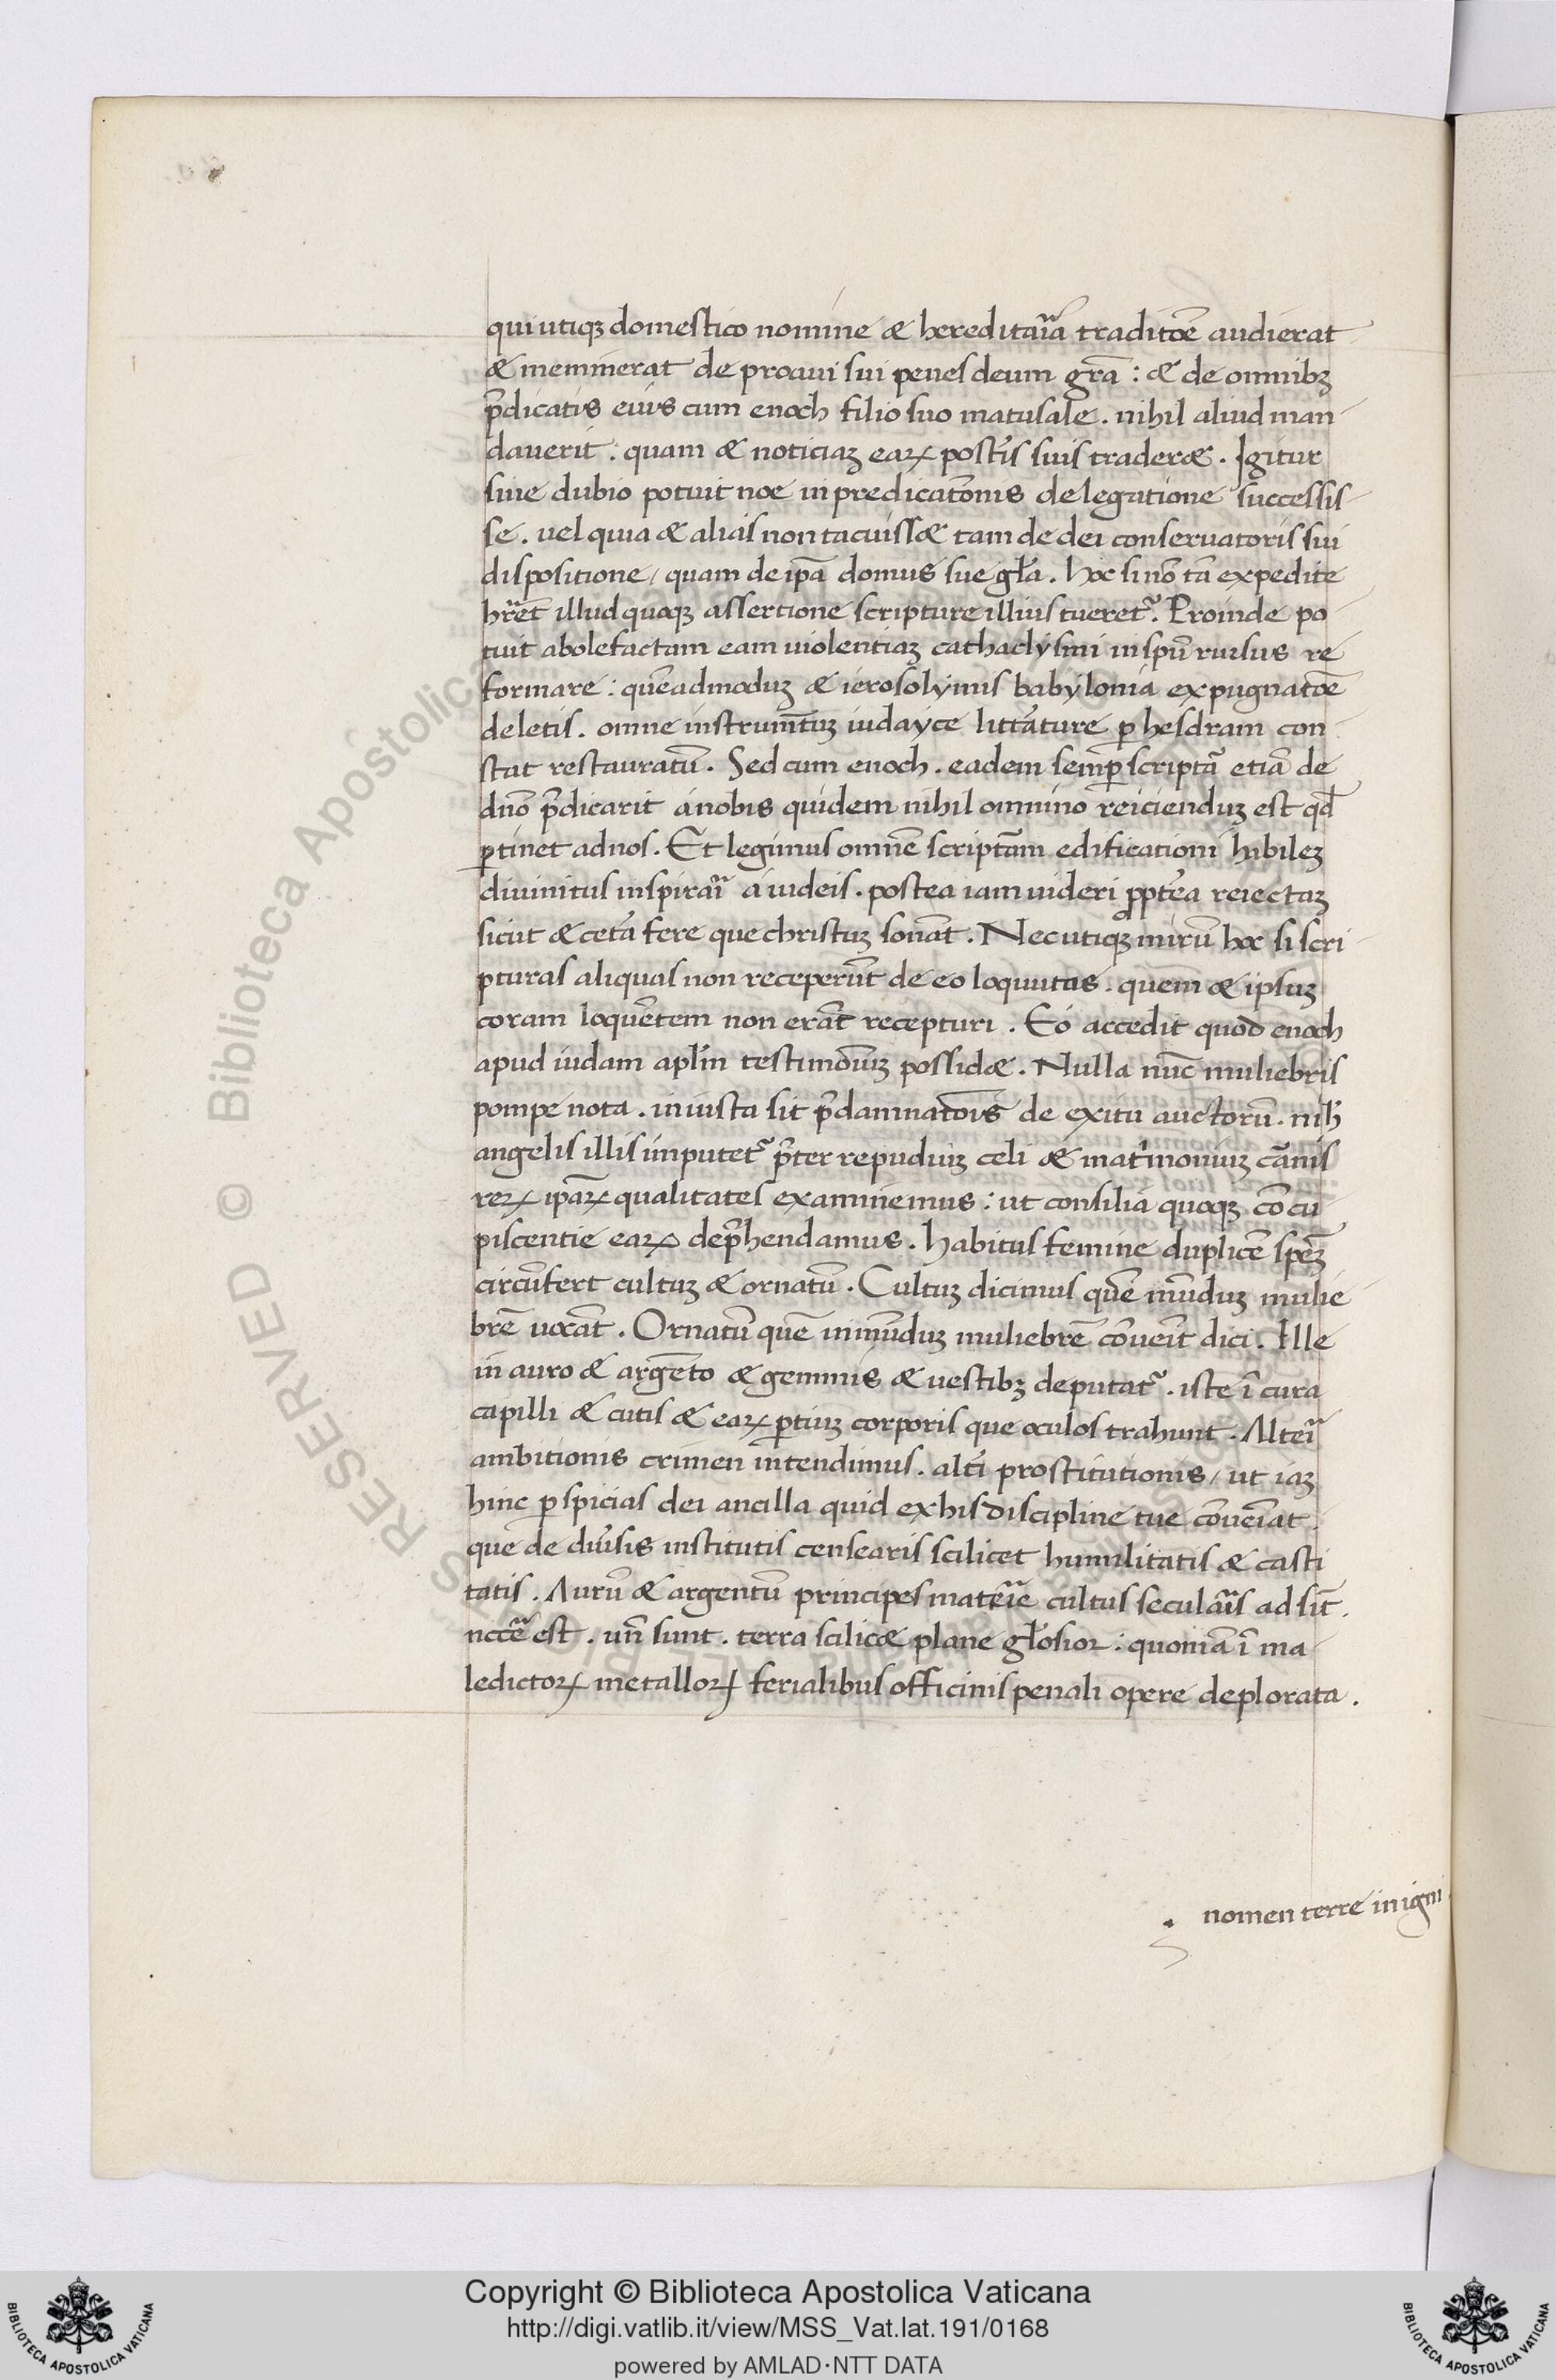 qui utiqꝫ domestico nomine & hereditar̃ia traditõe audierat
& meminerat de proaui sui penes deum gr̃a : & de omnibꝫ
p̃dicatis eius cum enoch filio suo matusale . nihil aliud man
dauerit : quam & noticiaꝫ eaꝝ post̾is suis trader& . Igitur
sine dubio potuit noe in predicat̃onis delegatione successis
se . uel quia & alias non tacuiss& tam de dei conseruatoris sui
dispositione / quam de ip̃a domus sue gl̃a . Hoc si nõ tã expedite
hr̃et illud quoqꝫ assertione scripture illius tueret̃ . Proinde po
tuit abolefactam eam uiolentiaꝫ cathaclysmi in spũ rursus re
formare : quẽadmoduꝫ & ierosolymis babylonia expugnatõe
deletis . omne instrum̃tuꝫ iudayce litt̾ature ꝑ hesdram con
stat restauratũ . Sed cum enoch . eadem semꝑ script̃a etiã de
dño p̃dicarit a nobis quidem nihil omnino reicienduꝫ est qđ
ꝑtinet ad nos . Et legimus omnẽ script̃am edificationi hibileꝫ
diuinitus inspirar̃i a iudeis . postea iam uideri ꝓpt̾ea reiectaꝫ
sicut & cet̾a fere que christuꝫ sonãt . Nec utiqꝫ mirũ hoc si scri
pturas aliquas non receperũt de eo loquutas . quem & ipsuꝫ
coram loquẽtem non erãt recepturi . Eo accedit quod enoch
apud iudam apl̃m testimoniuꝫ possid& . Nulla nũc muliebris
pompe nota . iniusta sit p̃damnat̃ois de exitu auctorũ . nih̃
angelis illis imputet̃ p̃ter repudiuꝫ celi & mat̾imoniuꝫ cãrnis
reꝝ ip̃aꝝ qualitates examinemus : ut consilia quoqꝫ cõcu
piscentie eaꝝ dep̃hendamus . Habitus femine duplicẽ sp̃eꝫ
circũfert cultuꝫ & ornatũ . Cultuꝫ dicimus quẽ mũduꝫ mulie
brẽ uocãt . Ornatũ quẽ inmũduꝫ muliebrẽ cõuẽit dici . Ille
in auro & argẽto & gemmis & uestibꝫ deputat̃ . iste ĩ cura
capilli & cutis & eaꝝ ꝑtiuꝫ corporis que oculos trahunt . Alter̃i
ambitionis crimen intendimus . alt̾i prostitutionis / ut iaꝫ
hinc ꝑspicias dei ancilla quid ex his discipline tue cõueniat .
que de diu̾sis institutis censearis scilicet humilitatis & casti
tatis . Aurũ & argentũ principes mater̃ie cultus secular̃is ad sĩt .
nccẽ est . uñ sunt . terra scilic& plane gl̃osior : quoniã ĩ ma
ledictoꝝ metalloꝝ ferialibus officinis penali opere deplorata .
nomen terre in igni
Biblioteca Apostolica
RESERVED ©
Copyright © Biblioteca Apostolica Vaticana
http://digi.vatlib.it/view/MSS_Vat.lat.191/0168
powered by AMLAD·NTT DATA
BIBLIOTECA APOSTOLICA VATICANA
BIBLIOTECA APOSTOLICA VATICANA